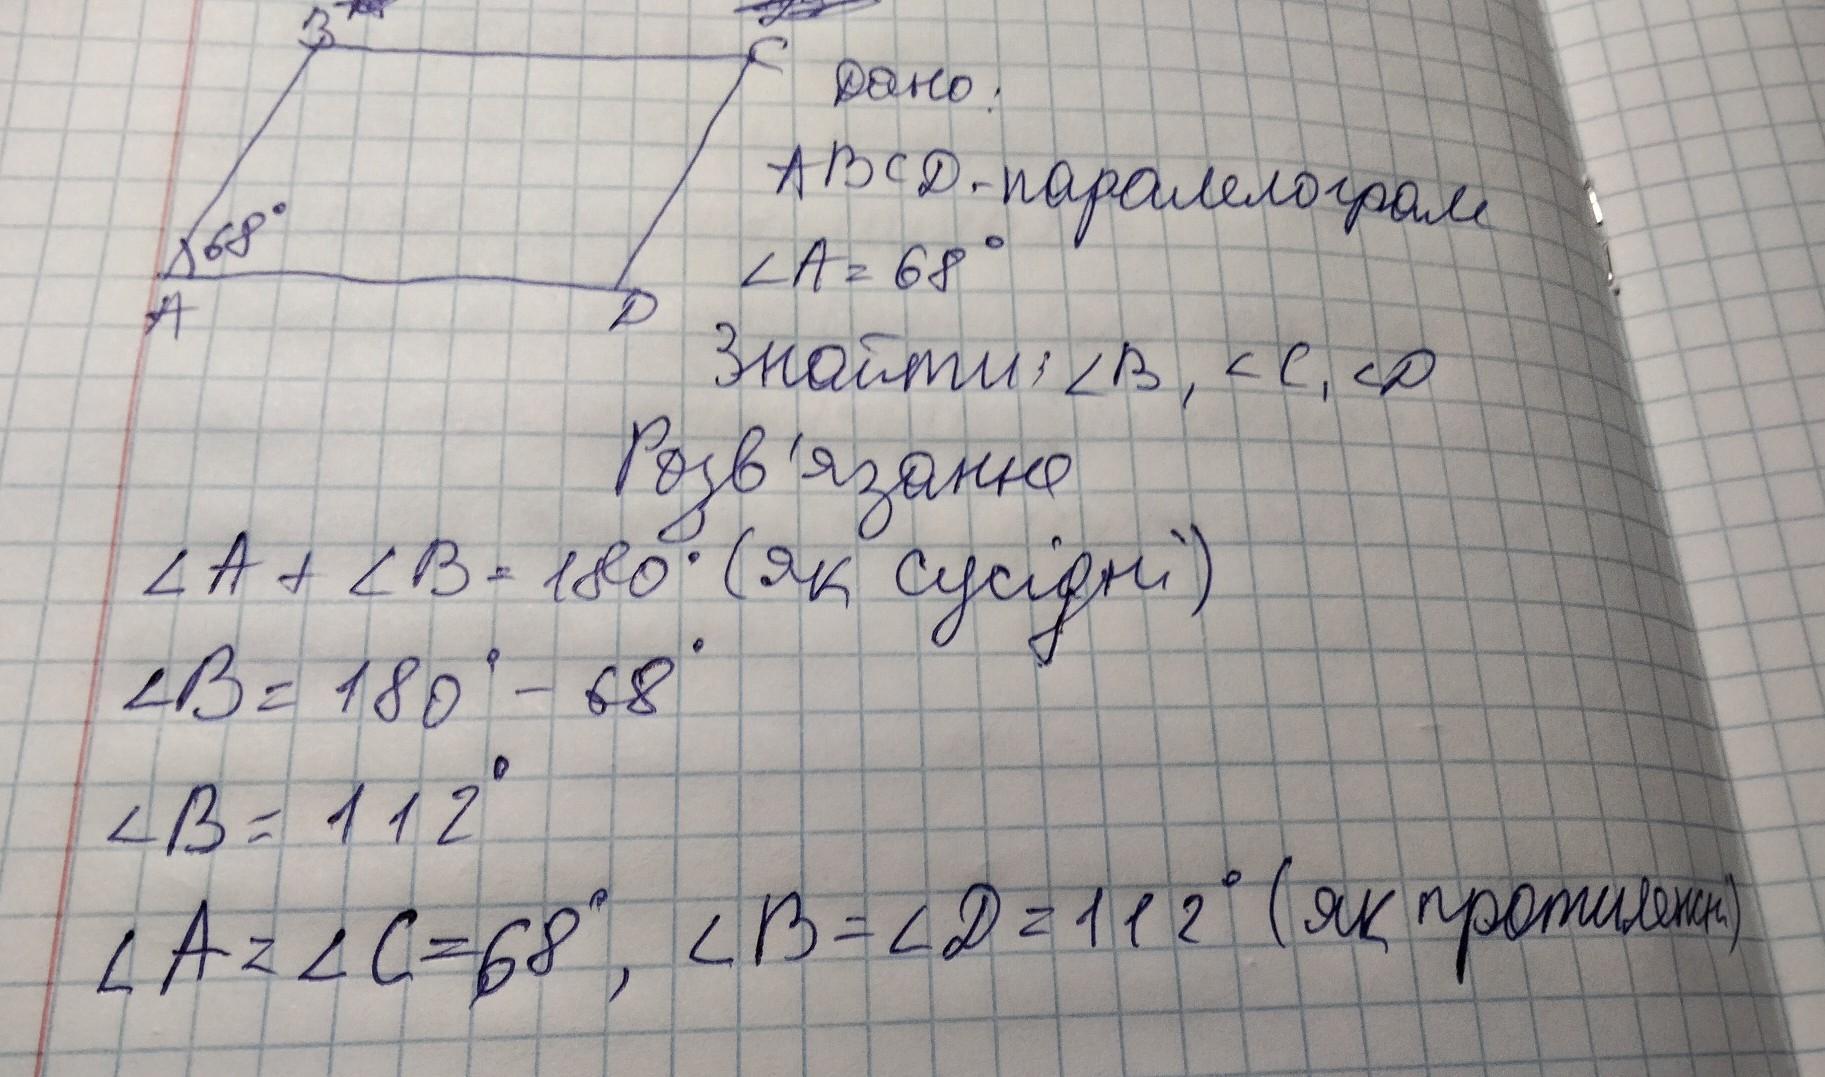 B
C
68°
A
D
Дано:
ABCD - паралелограм
∠A = 68°
Знайти: ∠B, ∠C, ∠D
Розв'язання
∠A + ∠B = 180° (як сусідні)
∠B = 180° - 68°
∠B = 112°
∠A = ∠C = 68°, ∠B = ∠D = 112° (як протилежні)